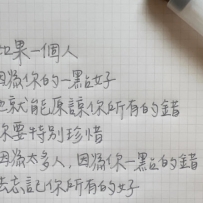 如果一個人
因為你的一點好
也就能原諒你所有的錯
你要特別珍惜
因為太多人，因為你一點的錯
去忘記你所有的好